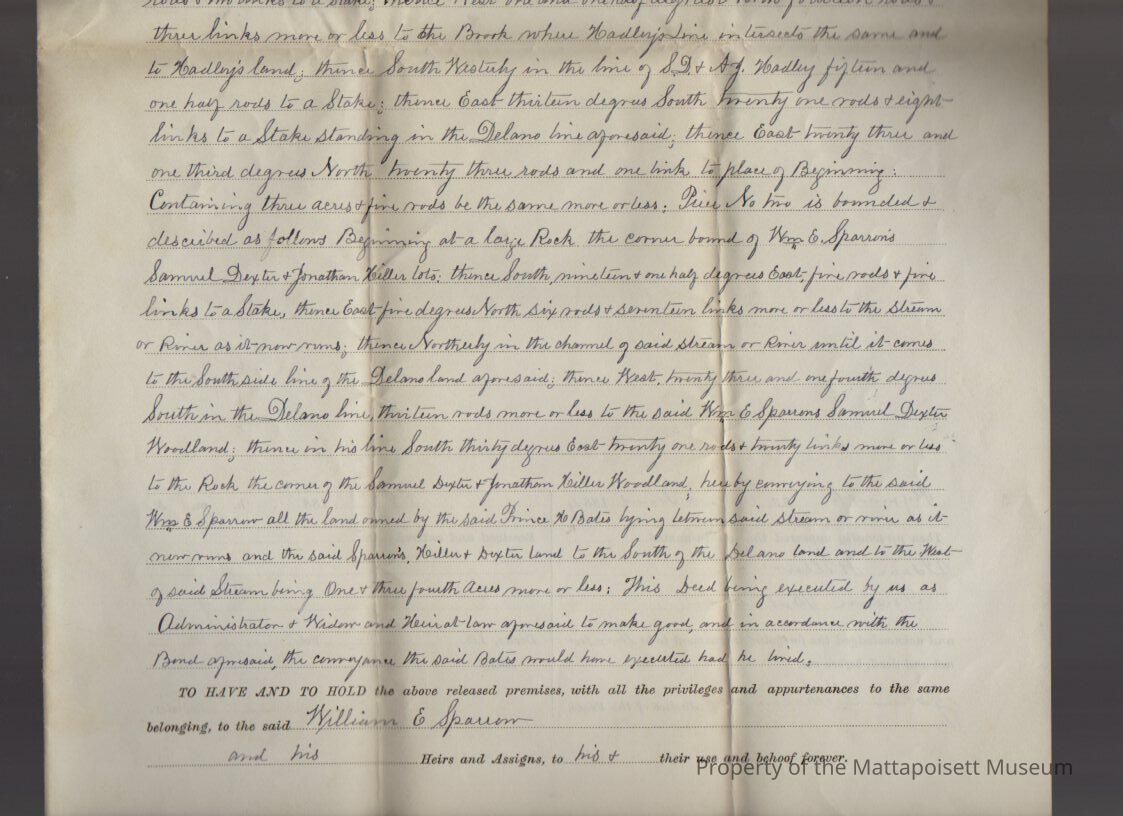 rods & two links to a Stake; thence West one and one half degrees North fourteen rods &
three links more or less to the Brook where Hadley's Line intersects the same and
to Hadley's land; thence South Westerly in the line of S.D. & A.J. Hadley fifteen and
one half rods to a Stake; thence East thirteen degrees South twenty one rods & eight
links to a Stake standing in the Delano line aforesaid; thence East twenty three and
one third degrees North twenty three rods and one link to place of Beginning:
Containing three acres & five rods be the same more or less: Piece No two is bounded &
described as follows Beginning at a large Rock the corner bound of Wm E. Sparrow's
Samuel Dexter & Jonathan Hiller lots: thence South, nineteen & one half degrees East, five rods & five
links to a Stake, thence East five degrees North six rods & seventeen links more or less to the stream
or River as it now runs; thence Northerly in the channel of said stream or River until it comes
to the South side line of the Delano land aforesaid; thence West, twenty three and one fourth degrees
South in the Delano line, thirteen rods more or less to the said Wm E Sparrows Samuel Dexter
Woodland; thence in his line South thirty degrees East twenty one rods & twenty links more or less
to the Rock the corner of the Samuel Dexter & Jonathan Hiller Woodland, hereby conveying to the said
Wm E Sparrow all the land owned by the said Prince H Bates lying between said stream or river as it
now runs and the said Sparrow's, Hiller & Dexter land to the South of the Delano land and to the West
of said Stream being One & three fourth Acres more or less: This Deed being executed by us as
Administrator & Widow and Heir at law aforesaid to make good, and in accordance with the
Bond aforesaid, the conveyance the said Bates would have executed had he lived.
TO HAVE AND TO HOLD the above released premises, with all the privileges and appurtenances to the same
belonging, to the said William E Sparrow
and his Heirs and Assigns, to his & their use and behoof forever.
Property of the Mattapoisett Museum